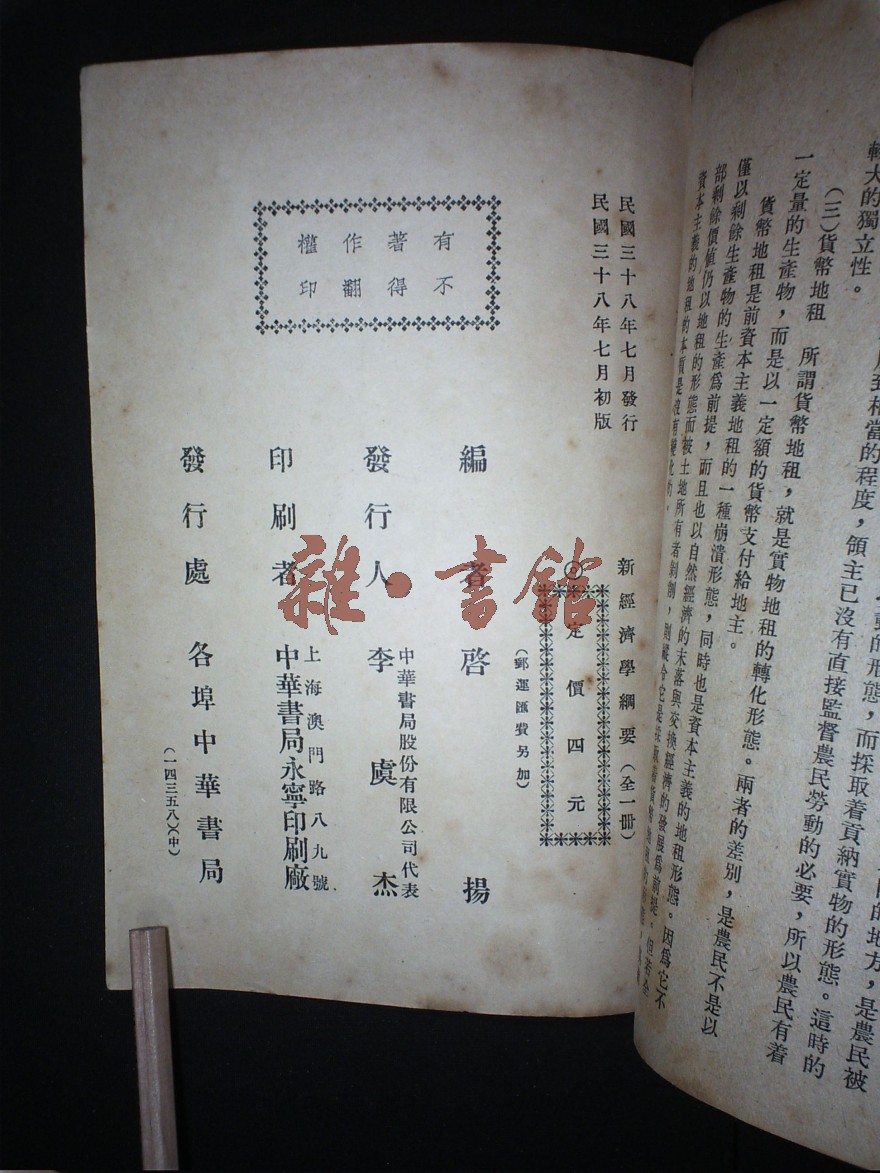 較大的獨立性。
(三)貨幣地租　所謂貨幣地租，就是實物地租的轉化形態。兩者的差別，是農民不是以
一定量的生產物，而是以一定額的貨幣支付給地主。
貨幣地租是前資本主義地租的一種崩潰形態，同時也是資本主義的地租形態。因爲它不
僅以剩餘生產物的生產爲前提，而且也以自然經濟的末落與交換經濟的發展爲前提。但若全
部剩餘價值仍以地租的形態而被土地所有者剝削，則縱令它是採取着貨幣地租的
資本主義的地租的本質是沒有變化的。
民國三十八年七月發行
民國三十八年七月初版
有著作權
不得翻印
新經濟學綱要(全一冊)
定價四元
(郵運匯費另加)
編者　啓揚
發行人　李虞杰
中華書局股份有限公司代表
印刷者　中華書局永寧印刷廠
上海澳門路八九號
發行處　各埠中華書局
(一四三五八)(中)
雜·書館